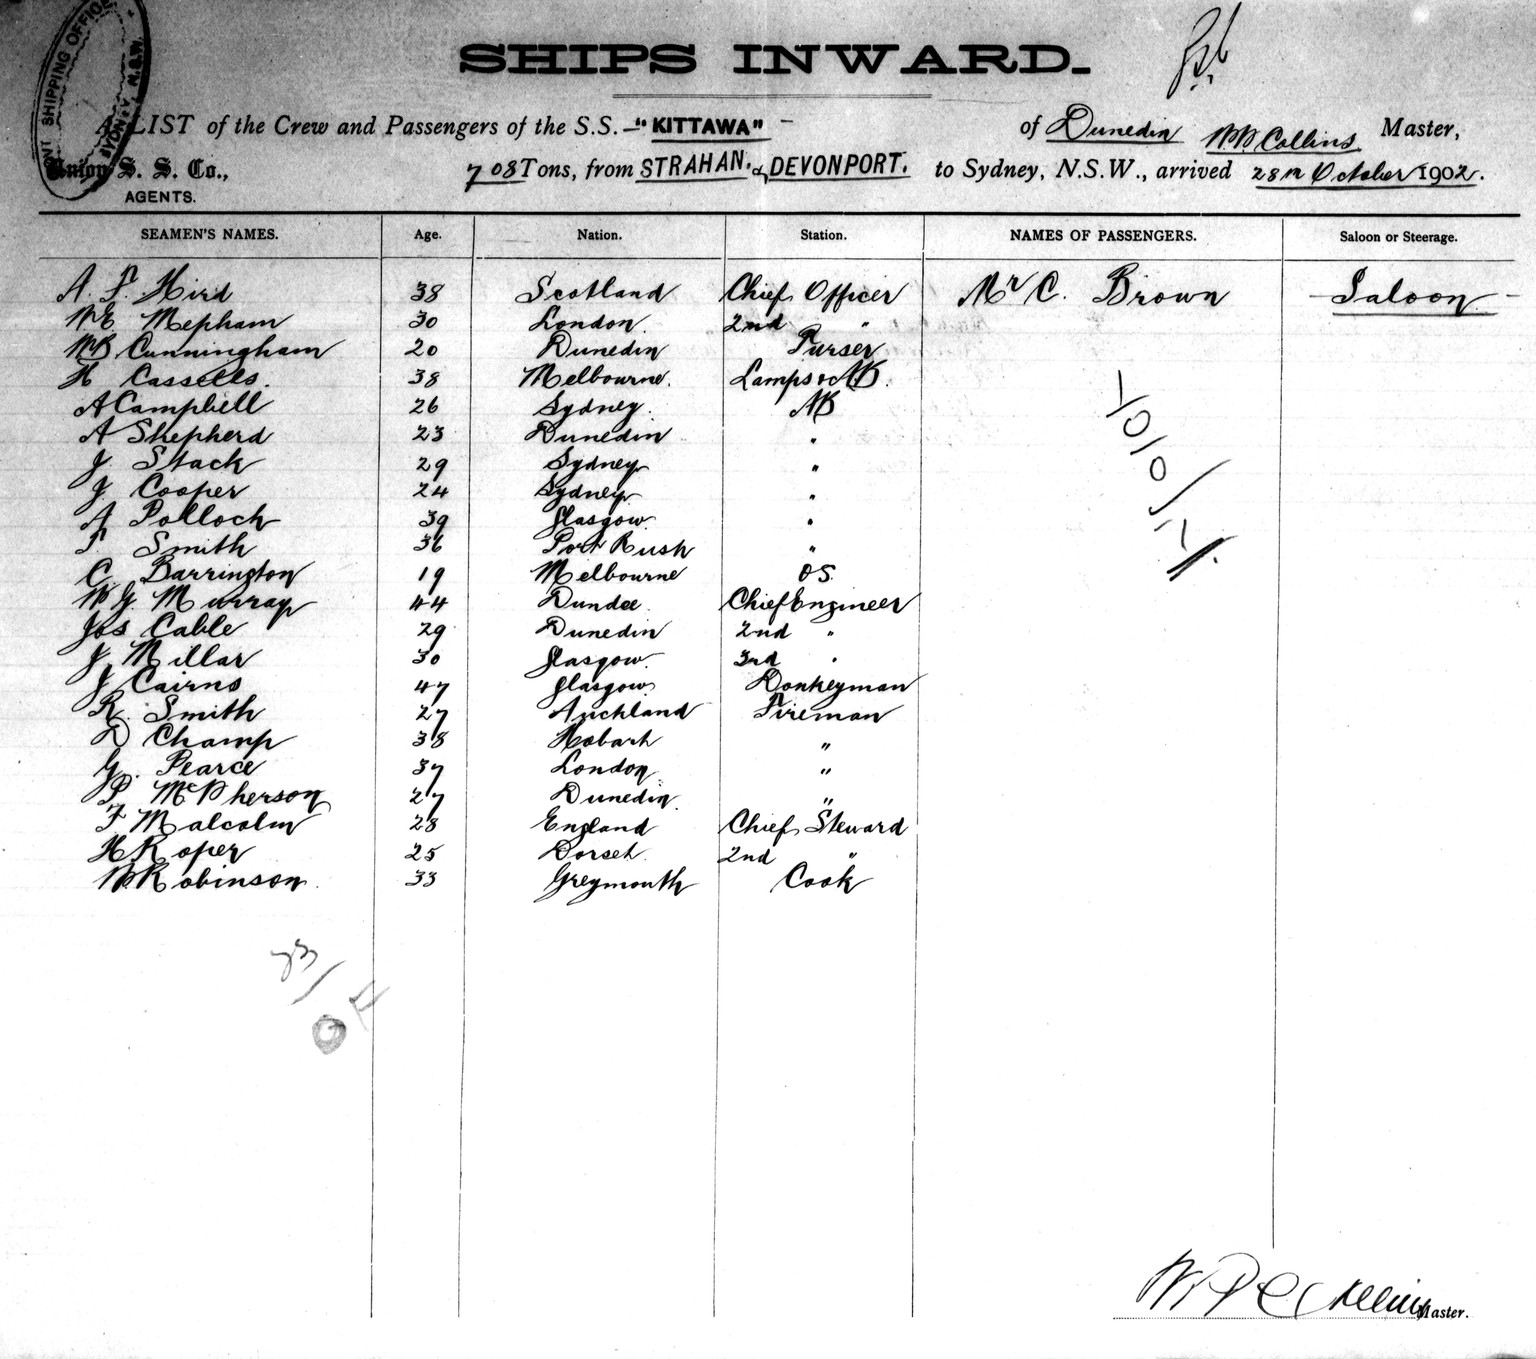 GOVT SHIPPING OFFICE SYDNEY N.S.W.
SHIPS INWARD.
A LIST of the Crew and Passengers of the S.S. "KITTAWA" of Dunedin W P Collins Master,
Union S. S. Co., 708 Tons, from STRAHAN. & DEVONPORT. to Sydney, N.S.W., arrived 28th October 1902.
AGENTS.
SEAMEN'S NAMES. Age. Nation. Station. NAMES OF PASSENGERS. Saloon or Steerage.
A. F. Hird 38 Scotland Chief Officer Mr C. Brown Saloon
W E Mepham 30 London. 2nd "
W B Cunningham 20 Dunedin Purser
H Cassells. 38 Melbourne. Lamps & AB.
A Campbell 26 Sydney. AB
A Shepherd 23 Dunedin "
J Stack 29 Sydney "
J Cooper 24 Sydney "
A Pollock 39 Glasgow. "
F Smith 36 Port Rush "
C. Barrington 19 Melbourne OS.
W G. Murray 44 Dundee. Chief Engineer
Jos Cable 29 Dunedin 2nd "
J Millar 30 Glasgow. 3rd "
J Cairns 47 Glasgow Donkeyman
R. Smith 27 Auckland Fireman
D Champ 38 Hobart "
G. Pearce 37 London "
P McPherson 27 Dunedin. "
F Malcolm 28 England Chief Steward
H Roper 25 Dorset. 2nd "
W Robinson. 33 Greymouth Cook
23/
W P Collins Master.